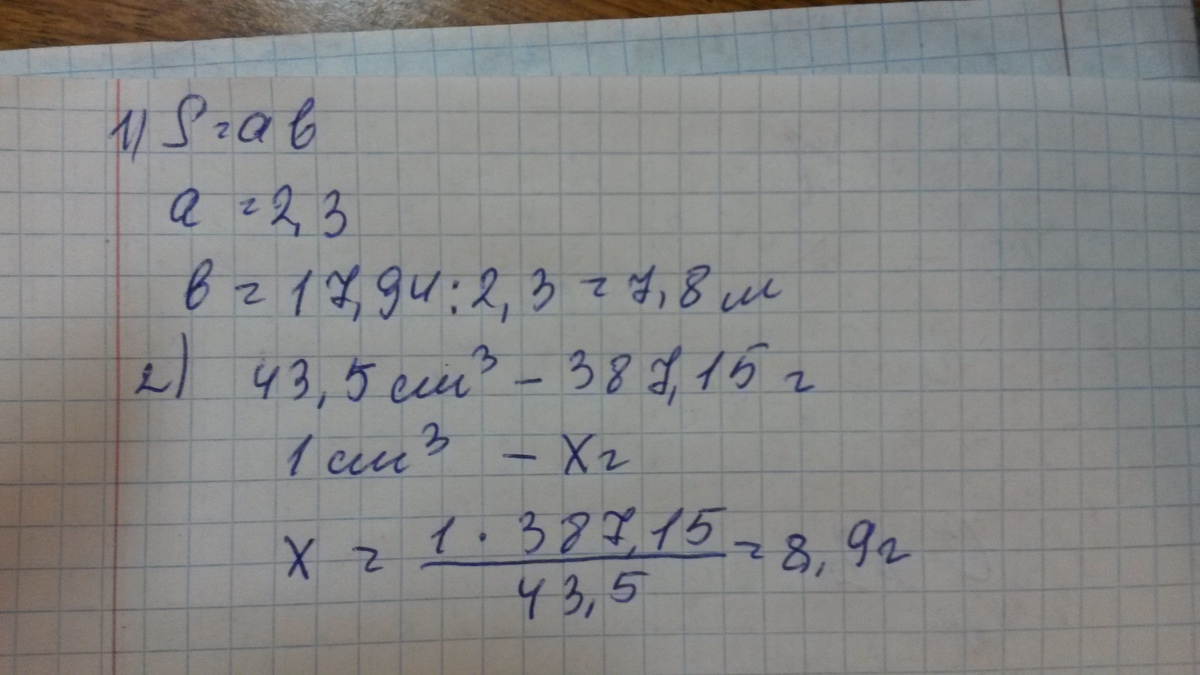 1) S = a в
a = 2,3
в = 17,94 : 2,3 = 7,8 м
2) 43,5 см³ – 387,15 г
1 см³ – X г
X = 1 · 387,15 / 43,5 = 8,9 г